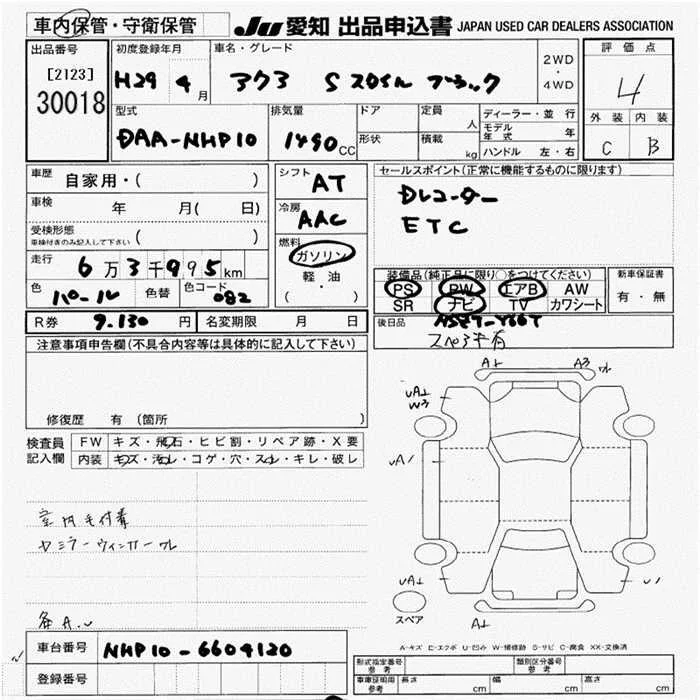 車内保管・守衛保管
JU 愛知 出品申込書 JAPAN USED CAR DEALERS ASSOCIATION
出品番号
[2123]
30018
初度登録年月
H29 4月
車名・グレード
アクア S スタイル ブラック
2WD・4WD
評価点
4
外装 内装
C B
型式
DAA-NHP10
排気量
1490 CC
ドア
形状
定員 人
積載 kg
ディーラー・並行
モデル年式 年
ハンドル 左・右
車歴 自家用・( )
車検 年 月( 日)
受検形態
車検付きのみ記入して下さい ( )
走行 6万3千995km
色 パール 色替 色コード 082
シフト AT
冷房 AAC
燃料
ガソリン
軽・油
( )
セールスポイント(正常に機能するものに限ります)
Dレコーダー
ETC
装備品(純正品に限り○をつけてください)
PS PW エアB AW
SR ナビ TV カワシート
新車保証書
有・無
後日品 NSZT-Y66T
スペア半有
R券 9.130円 名変期限 月 日
注意事項申告欄(不具合内容等は具体的に記入して下さい)
修復歴 有(箇所 )
検査員記入欄
FW キズ・飛石・ヒビ割・リペア跡・X要
内装 キズ・汚れ・コゲ・穴・スレ・キレ・破レ
室内毛付着
各A.U
A1 A3
UA1
W3
UA1
UA1
U1
A1
スペア
A-キズ E-エクボ U-凹み W-補修跡 S-サビ C-腐食 XX-交換済
車台番号 NHP10-6604120
登録番号
型式指定番号 参考
類別区分番号 参考
車庫証明用 参考
長さ cm 幅 cm 高さ cm